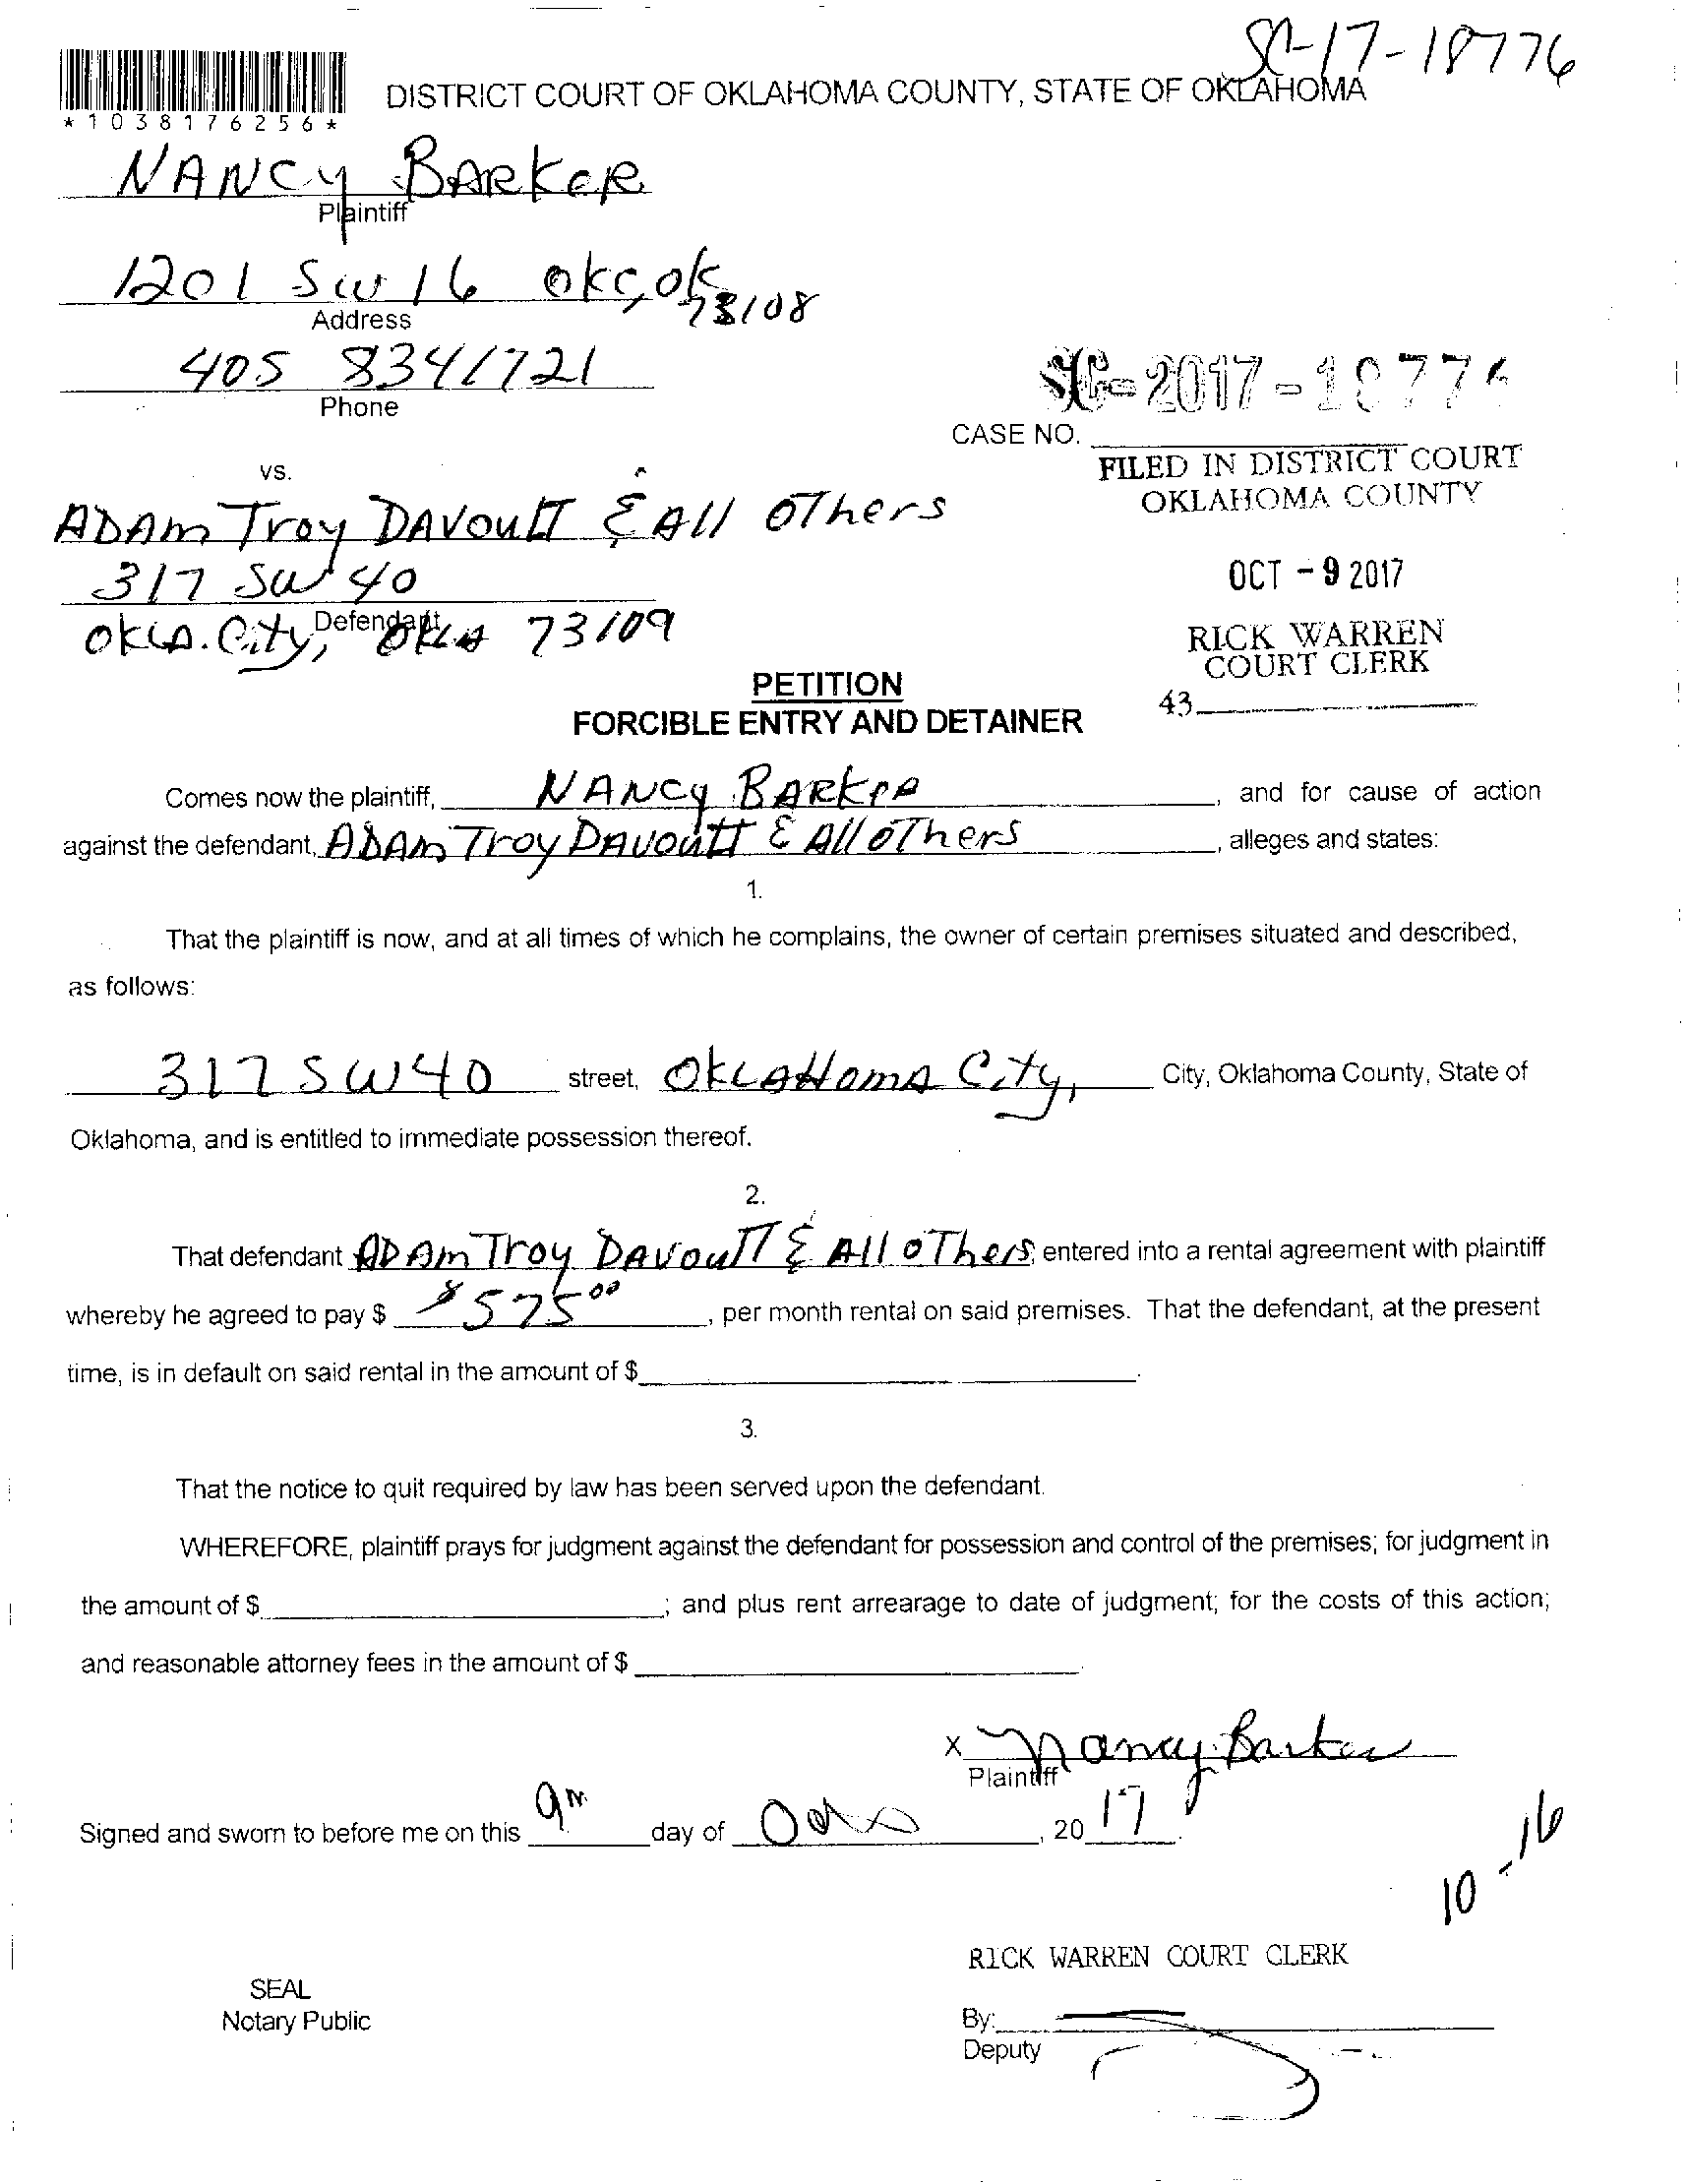 SC-17-18776
*1038176256*
DISTRICT COURT OF OKLAHOMA COUNTY, STATE OF OKLAHOMA
NANCY BARKER
Plaintiff
1201 SW 16 OKC, OK 73108
Address
405 8341721
Phone
SC-2017-18776
CASE NO.
FILED IN DISTRICT COURT
OKLAHOMA COUNTY
vs.
ADAM Troy DAVOUTT & All OThers
317 SW 40
OCT - 9 2017
Defendant
OKLA. City, OKLA 73109
RICK WARREN
COURT CLERK
43
PETITION
FORCIBLE ENTRY AND DETAINER
Comes now the plaintiff, NANCY BARKER, and for cause of action
against the defendant, ADAM Troy DAVOUTT & All OThers, alleges and states:
1.
That the plaintiff is now, and at all times of which he complains, the owner of certain premises situated and described,
as follows:
317 SW 40 street, OKLAHOMA City, City, Oklahoma County, State of
Oklahoma, and is entitled to immediate possession thereof.
2.
That defendant ADAM Troy DAVOUTT & All OThers, entered into a rental agreement with plaintiff
whereby he agreed to pay $ $575.00, per month rental on said premises. That the defendant, at the present
time, is in default on said rental in the amount of $
3.
That the notice to quit required by law has been served upon the defendant.
WHEREFORE, plaintiff prays for judgment against the defendant for possession and control of the premises; for judgment in
the amount of $ ; and plus rent arrearage to date of judgment; for the costs of this action;
and reasonable attorney fees in the amount of $
X Nancy Barker
Plaintiff
Signed and sworn to before me on this 9th day of , 2017.
10-16
RICK WARREN COURT CLERK
SEAL
Notary Public
By:
Deputy